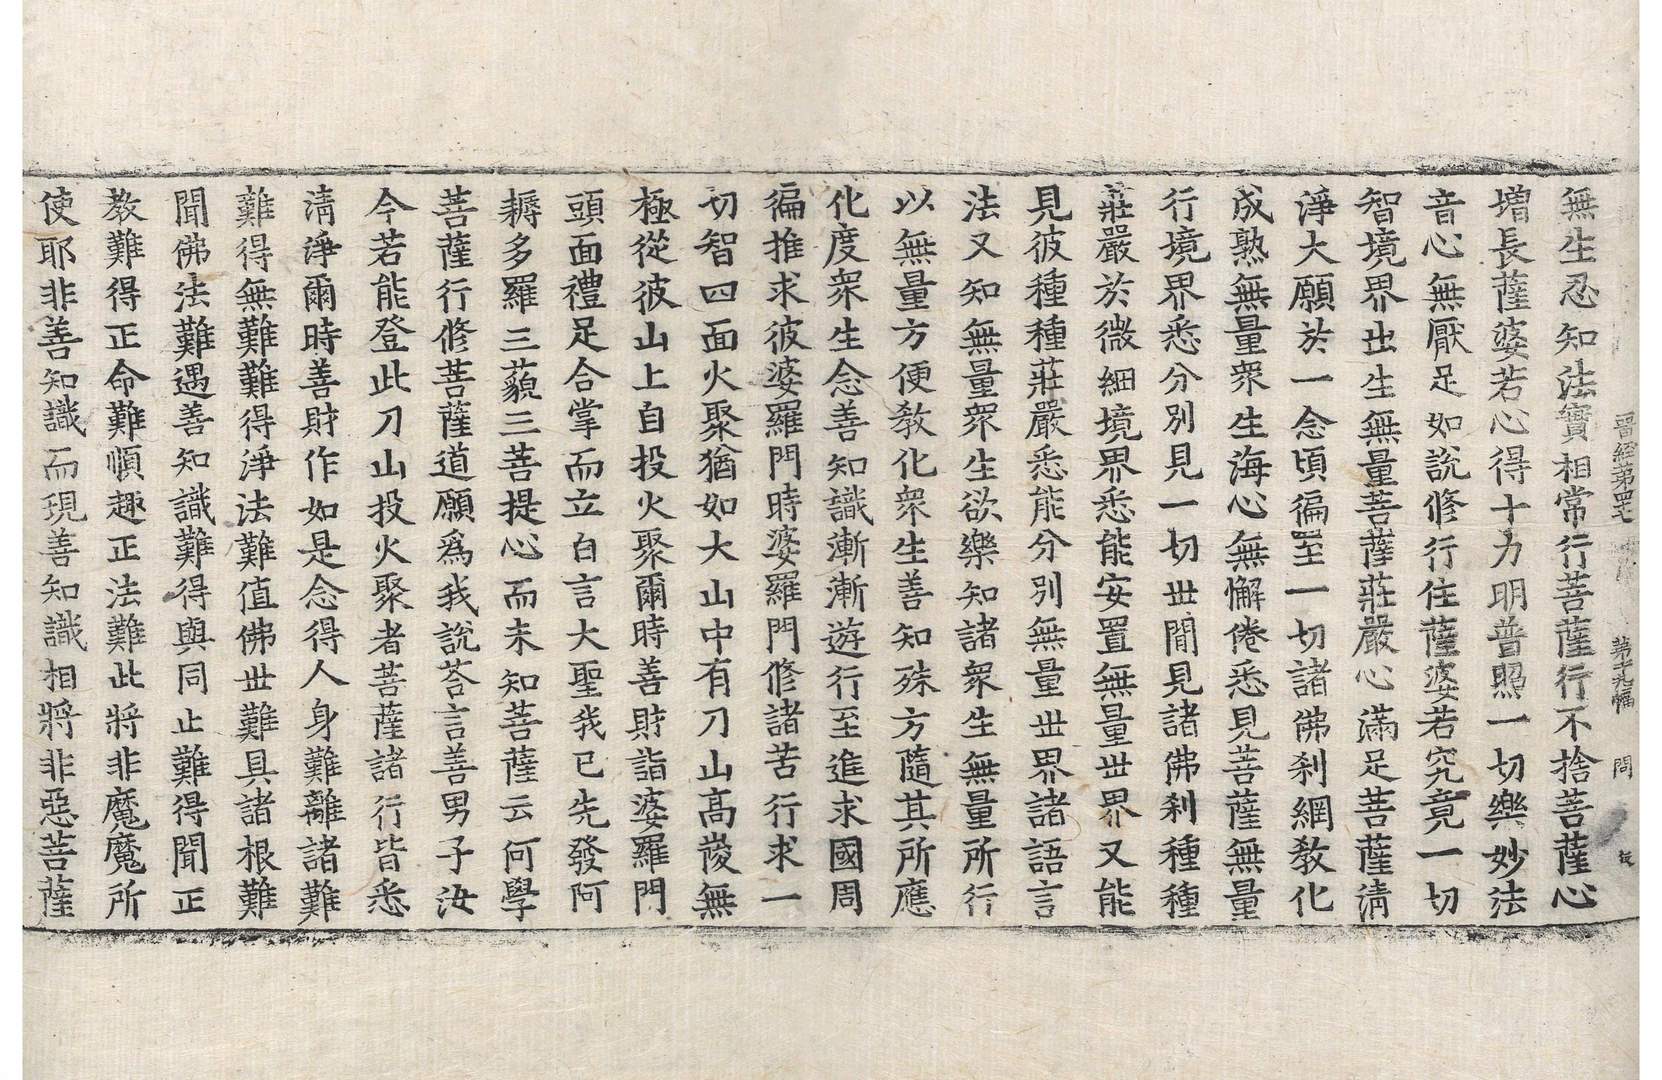 晋経第四七 第十九幅 問
無生忍知法寶相常行菩薩行不捨菩薩心
増長薩婆若心得十力明普照一切樂妙法
音心無厭足如說修行住薩婆若究竟一切
智境界出生無量菩薩莊嚴心滿足菩薩淸
淨大願於一念頃徧至一切諸佛刹網教化
成熟無量衆生海心無懈倦悉見菩薩無量
行境界悉分別見一切世間見諸佛刹種種
莊嚴於微細境界悉能安置無量世界又能
見彼種種莊嚴悉能分別無量世界諸語言
法又知無量衆生欲樂知諸衆生無量所行
以無量方便教化衆生善知殊方隨其所應
化度衆生念善知識漸漸遊行至進求國周
徧推求彼婆羅門時婆羅門修諸苦行求一
切智四面火聚猶如大山中有刀山高峻無
極從彼山上自投火聚爾時善財詣婆羅門
頭面禮足合掌而立白言大聖我已先發阿
耨多羅三藐三菩提心而未知菩薩云何學
菩薩行修菩薩道願爲我說荅言善男子汝
今若能登此刀山投火聚者菩薩諸行皆悉
淸淨爾時善財作如是念得人身難離諸難
難得無難難得淨法難值佛世難具諸根難
聞佛法難遇善知識難得與同止難得聞正
教難得正命難順趣正法難此將非魔魔所
使耶非善知識而現善知識相將非惡菩薩